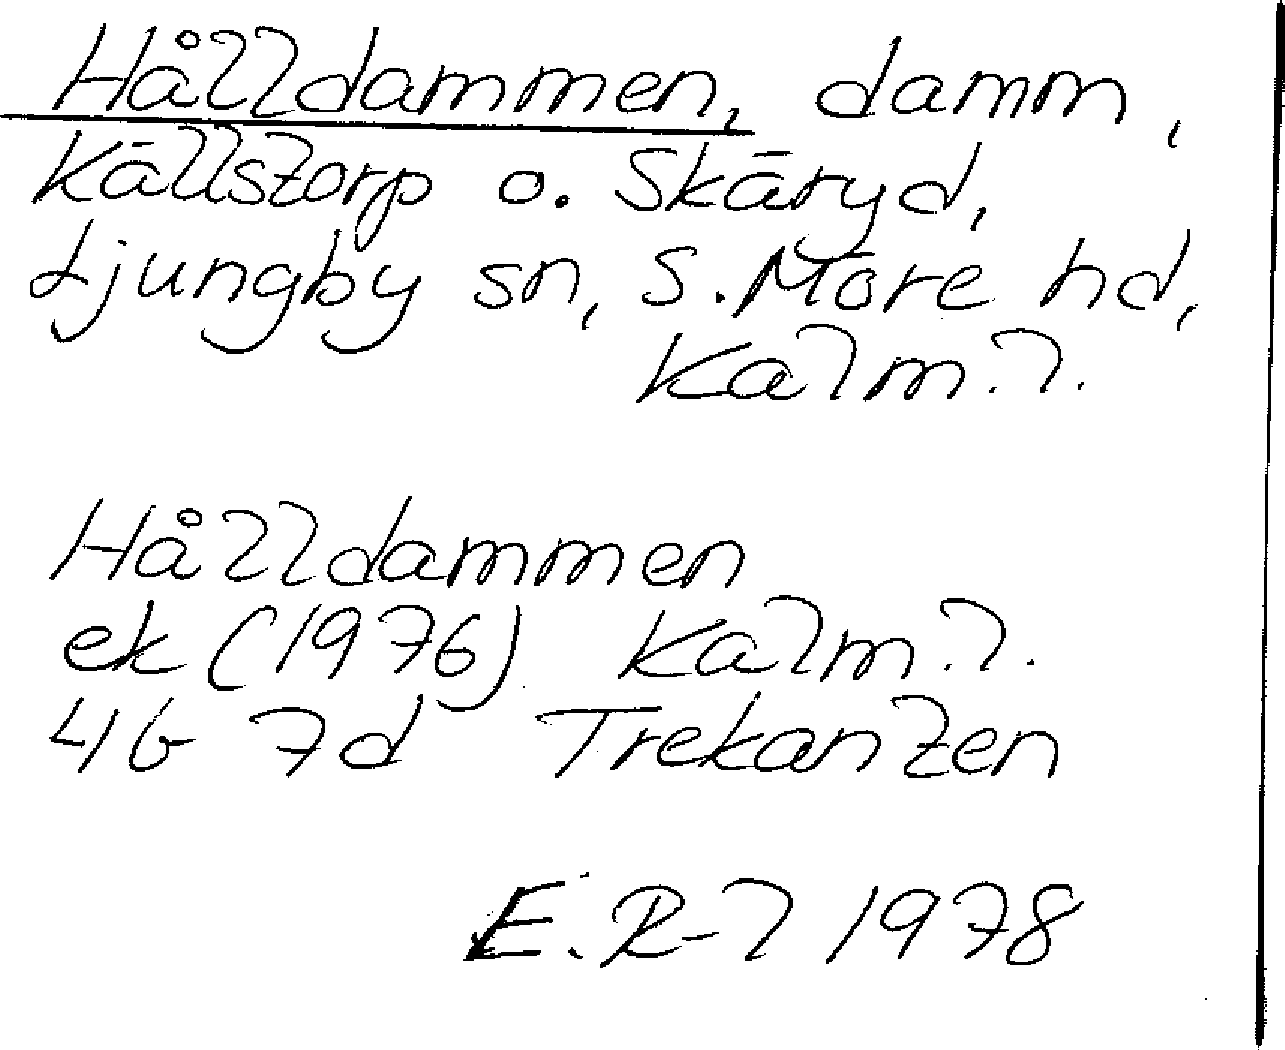 Hålldammen, damm,
Källstorp o. Skäryd,
Ljungby sn, S. Möre hd,
Kalm. l.
Hålldammen
ek (1976) Kalm. l.
4G 7d Trekanten
E. R-l 1978